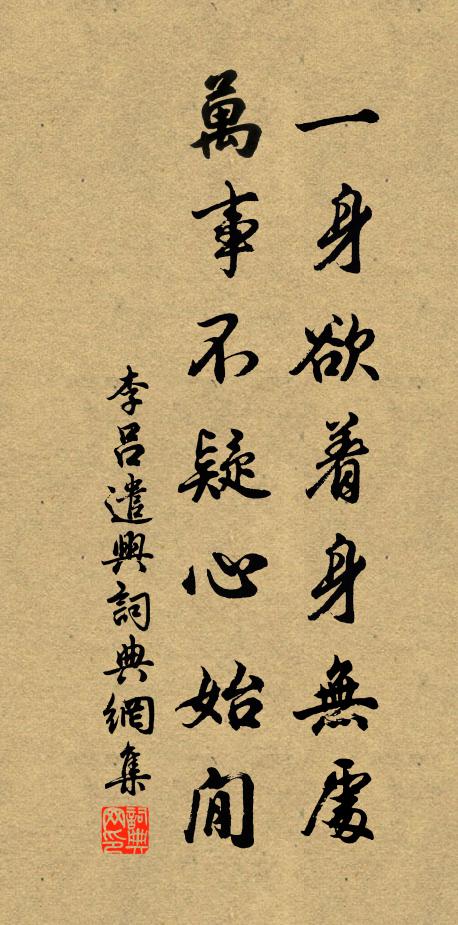 一身欲着身無處
萬事不疑心始閒
李呂遣興詞典網集
詞典網印